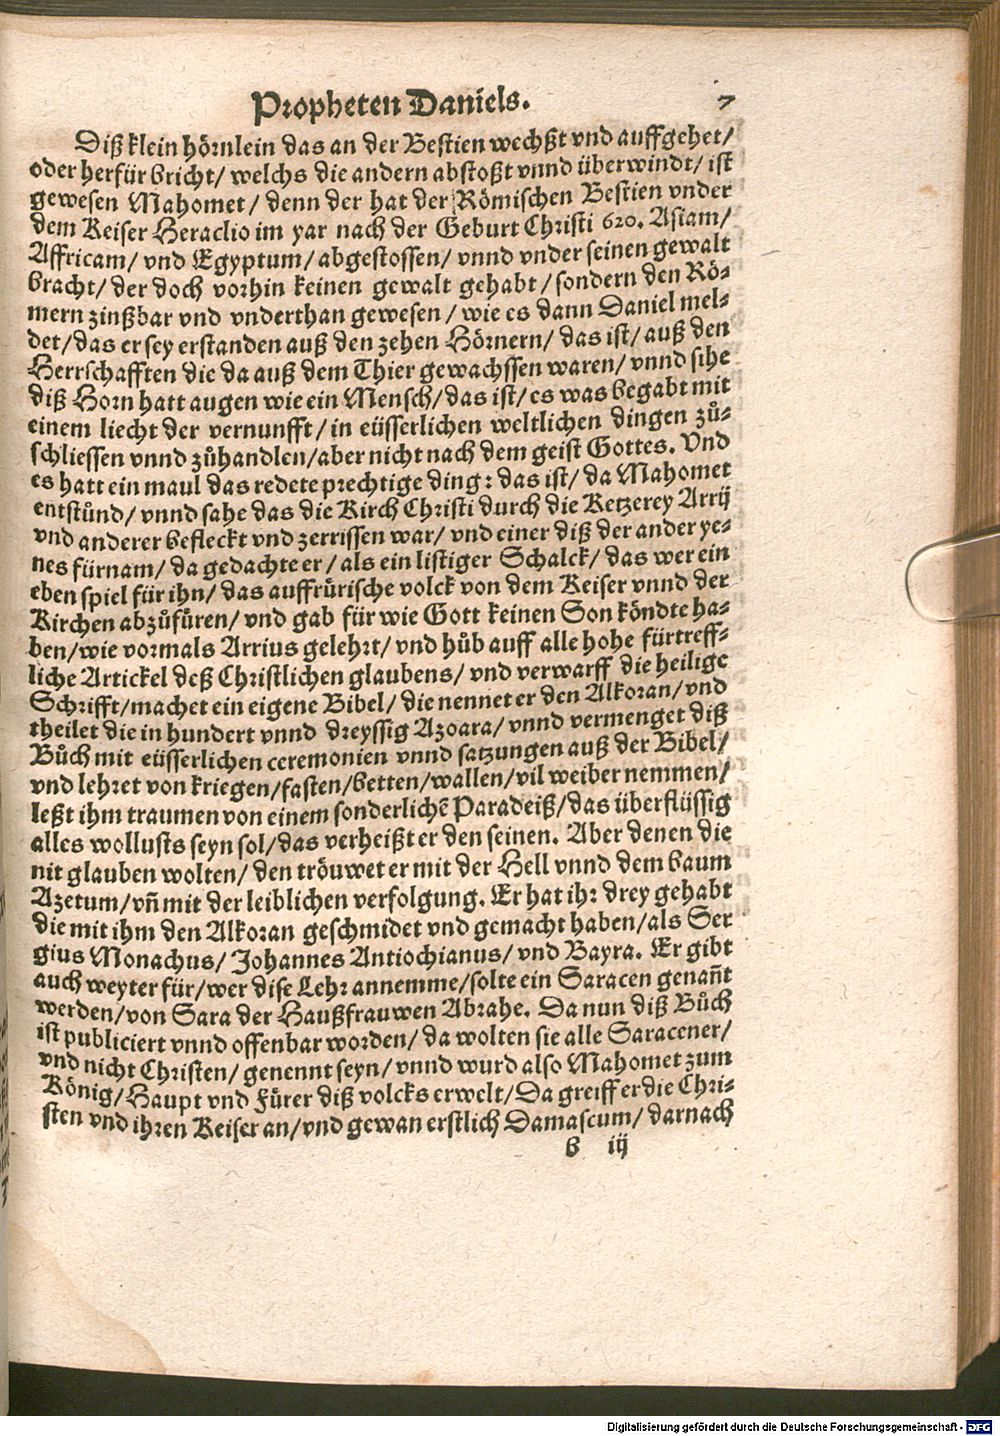 Propheten Daniels. 7
Diß klein hörnlein das an der Bestien wechßt vnd auffgehet/
oder herfür bricht/ welchs die andern abstoßt vnnd überwindt/ ist
gewesen Mahomet/ denn der hat der Römischen Bestien vnder
dem Keiser Heraclio im yar nach der Geburt Christi 620. Asiam/
Affricam/ vnd Egyptum/ abgestossen/ vnnd vnder seinen gewalt
bracht/ der doch vorhin keinen gewalt gehabt/ sondern den Rö-
mern zinßbar vnd vnderthan gewesen/ wie es dann Daniel mel-
det/ das er sey erstanden auß den zehen Hörnern/ das ist/ auß den
Herrschafften die da auß dem Thier gewachssen waren/ vnnd sihe
diß Horn hatt augen wie ein Mensch/ das ist/ es was begabt mit
einem liecht der vernunfft/ in eüsserlichen weltlichen dingen zů-
schliessen vnnd zůhandlen/ aber nicht nach dem geist Gottes. Vnd
es hatt ein maul das redete prechtige ding: das ist/ da Mahomet
entstůnd/ vnnd sahe das die Kirch Christi durch die Ketzerey Arrij
vnd anderer befleckt vnd zerrissen war/ vnd einer diß der ander ye-
nes fürnam/ da gedachte er/ als ein listiger Schalck/ das wer ein
eben spiel für ihn/ das auffrürische volck von dem Keiser vnnd der
Kirchen abzůfüren/ vnd gab für wie Gott keinen Son köndte ha-
ben/ wie vormals Arrius gelehrt/ vnd hůb auff alle hohe fürtreff-
liche Artickel deß Christlichen glaubens/ vnd verwarff die heilige
Schrifft/ machet ein eigene Bibel/ die nennet er den Alkoran/ vnd
theilet die in hundert vnnd dreyssig Azoara/ vnnd vermenget diß
Bůch mit eüsserlichen ceremonien vnnd satzungen auß der Bibel/
vnd lehret von kriegen/ fasten/ betten/ wallen/ vil weiber nemmen/
leßt ihm traumen von einem sonderlichē Paradeiß/ das überflüssig
alles wollusts seyn sol/ das verheißt er den seinen. Aber denen die
nit glauben wolten/ den tröuwet er mit der Hell vnnd dem baum
Azetum/ vñ mit der leiblichen verfolgung. Er hat ihr drey gehabt
die mit ihm den Alkoran geschmidet vnd gemacht haben/ als Ser
gius Monachus/ Johannes Antiochianus/ vnd Bayra. Er gibt
auch weyter für/ wer dise Lehr annemme/ solte ein Saracen genañt
werden/ von Sara der Haußfrauwen Abrahe. Da nun diß Bůch
ist publiciert vnnd offenbar worden/ da wolten sie alle Saracener/
vnd nicht Christen/ genennt seyn/ vnnd wurd also Mahomet zum
König/ Haupt vnd Fürer diß volcks erwelt/ Da greiff er die Chri-
sten vnd ihren Keiser an/ vnd gewan erstlich Damascum/ darnach
b iij
Digitalisierung gefördert durch die Deutsche Forschungsgemeinschaft - DFG